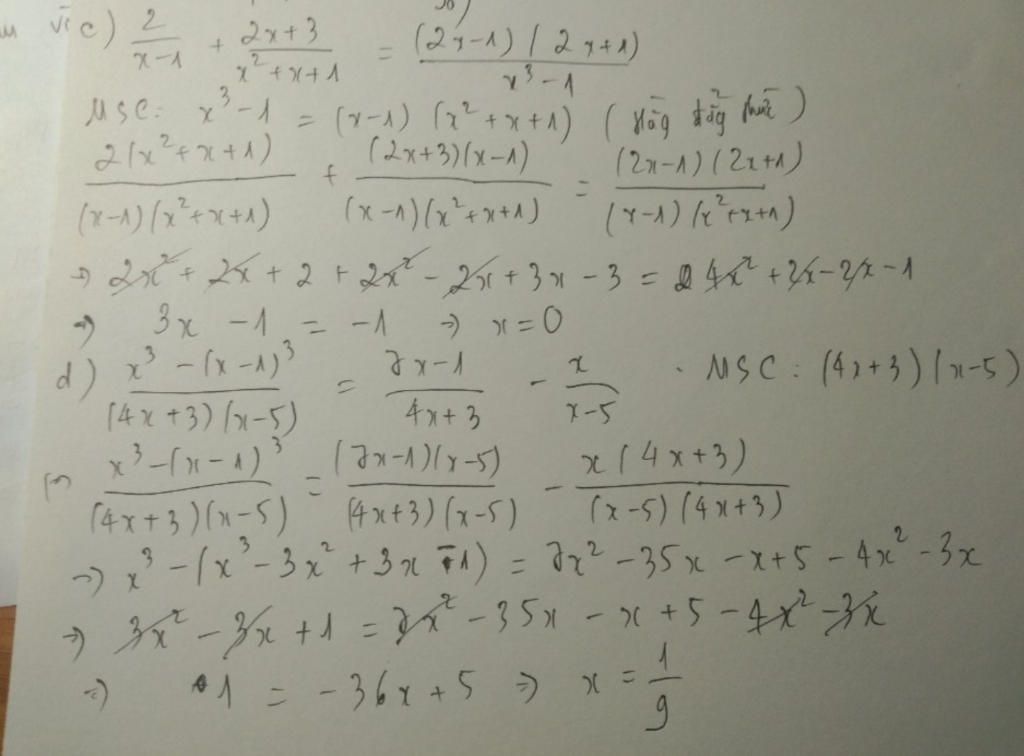 c) 2/(x-1) + (2x+3)/(x²+x+1) = (2x-1)(2x+1)/(x³-1)
MSC: x³-1 = (x-1)(x²+x+1) (Hằg đẳg thức)
2(x²+x+1)/((x-1)(x²+x+1)) + (2x+3)(x-1)/((x-1)(x²+x+1)) = (2x-1)(2x+1)/((x-1)(x²+x+1))
=> 2x² + 2x + 2 + 2x² - 2x + 3x - 3 = 4x² + 2x - 2x - 1
=> 3x - 1 = -1 => x = 0
d) (x³-(x-1)³)/((4x+3)(x-5)) = (7x-1)/(4x+3) - x/(x-5) . MSC: (4x+3)(x-5)
(=) (x³-(x-1)³)/((4x+3)(x-5)) = (7x-1)(x-5)/((4x+3)(x-5)) - x(4x+3)/((x-5)(4x+3))
=> x³-(x³-3x²+3x-1) = 7x²-35x-x+5-4x²-3x
=> 3x²-3x+1 = 7x²-35x-x+5-4x²-3x
=> 1 = -36x+5 => x = 1/9